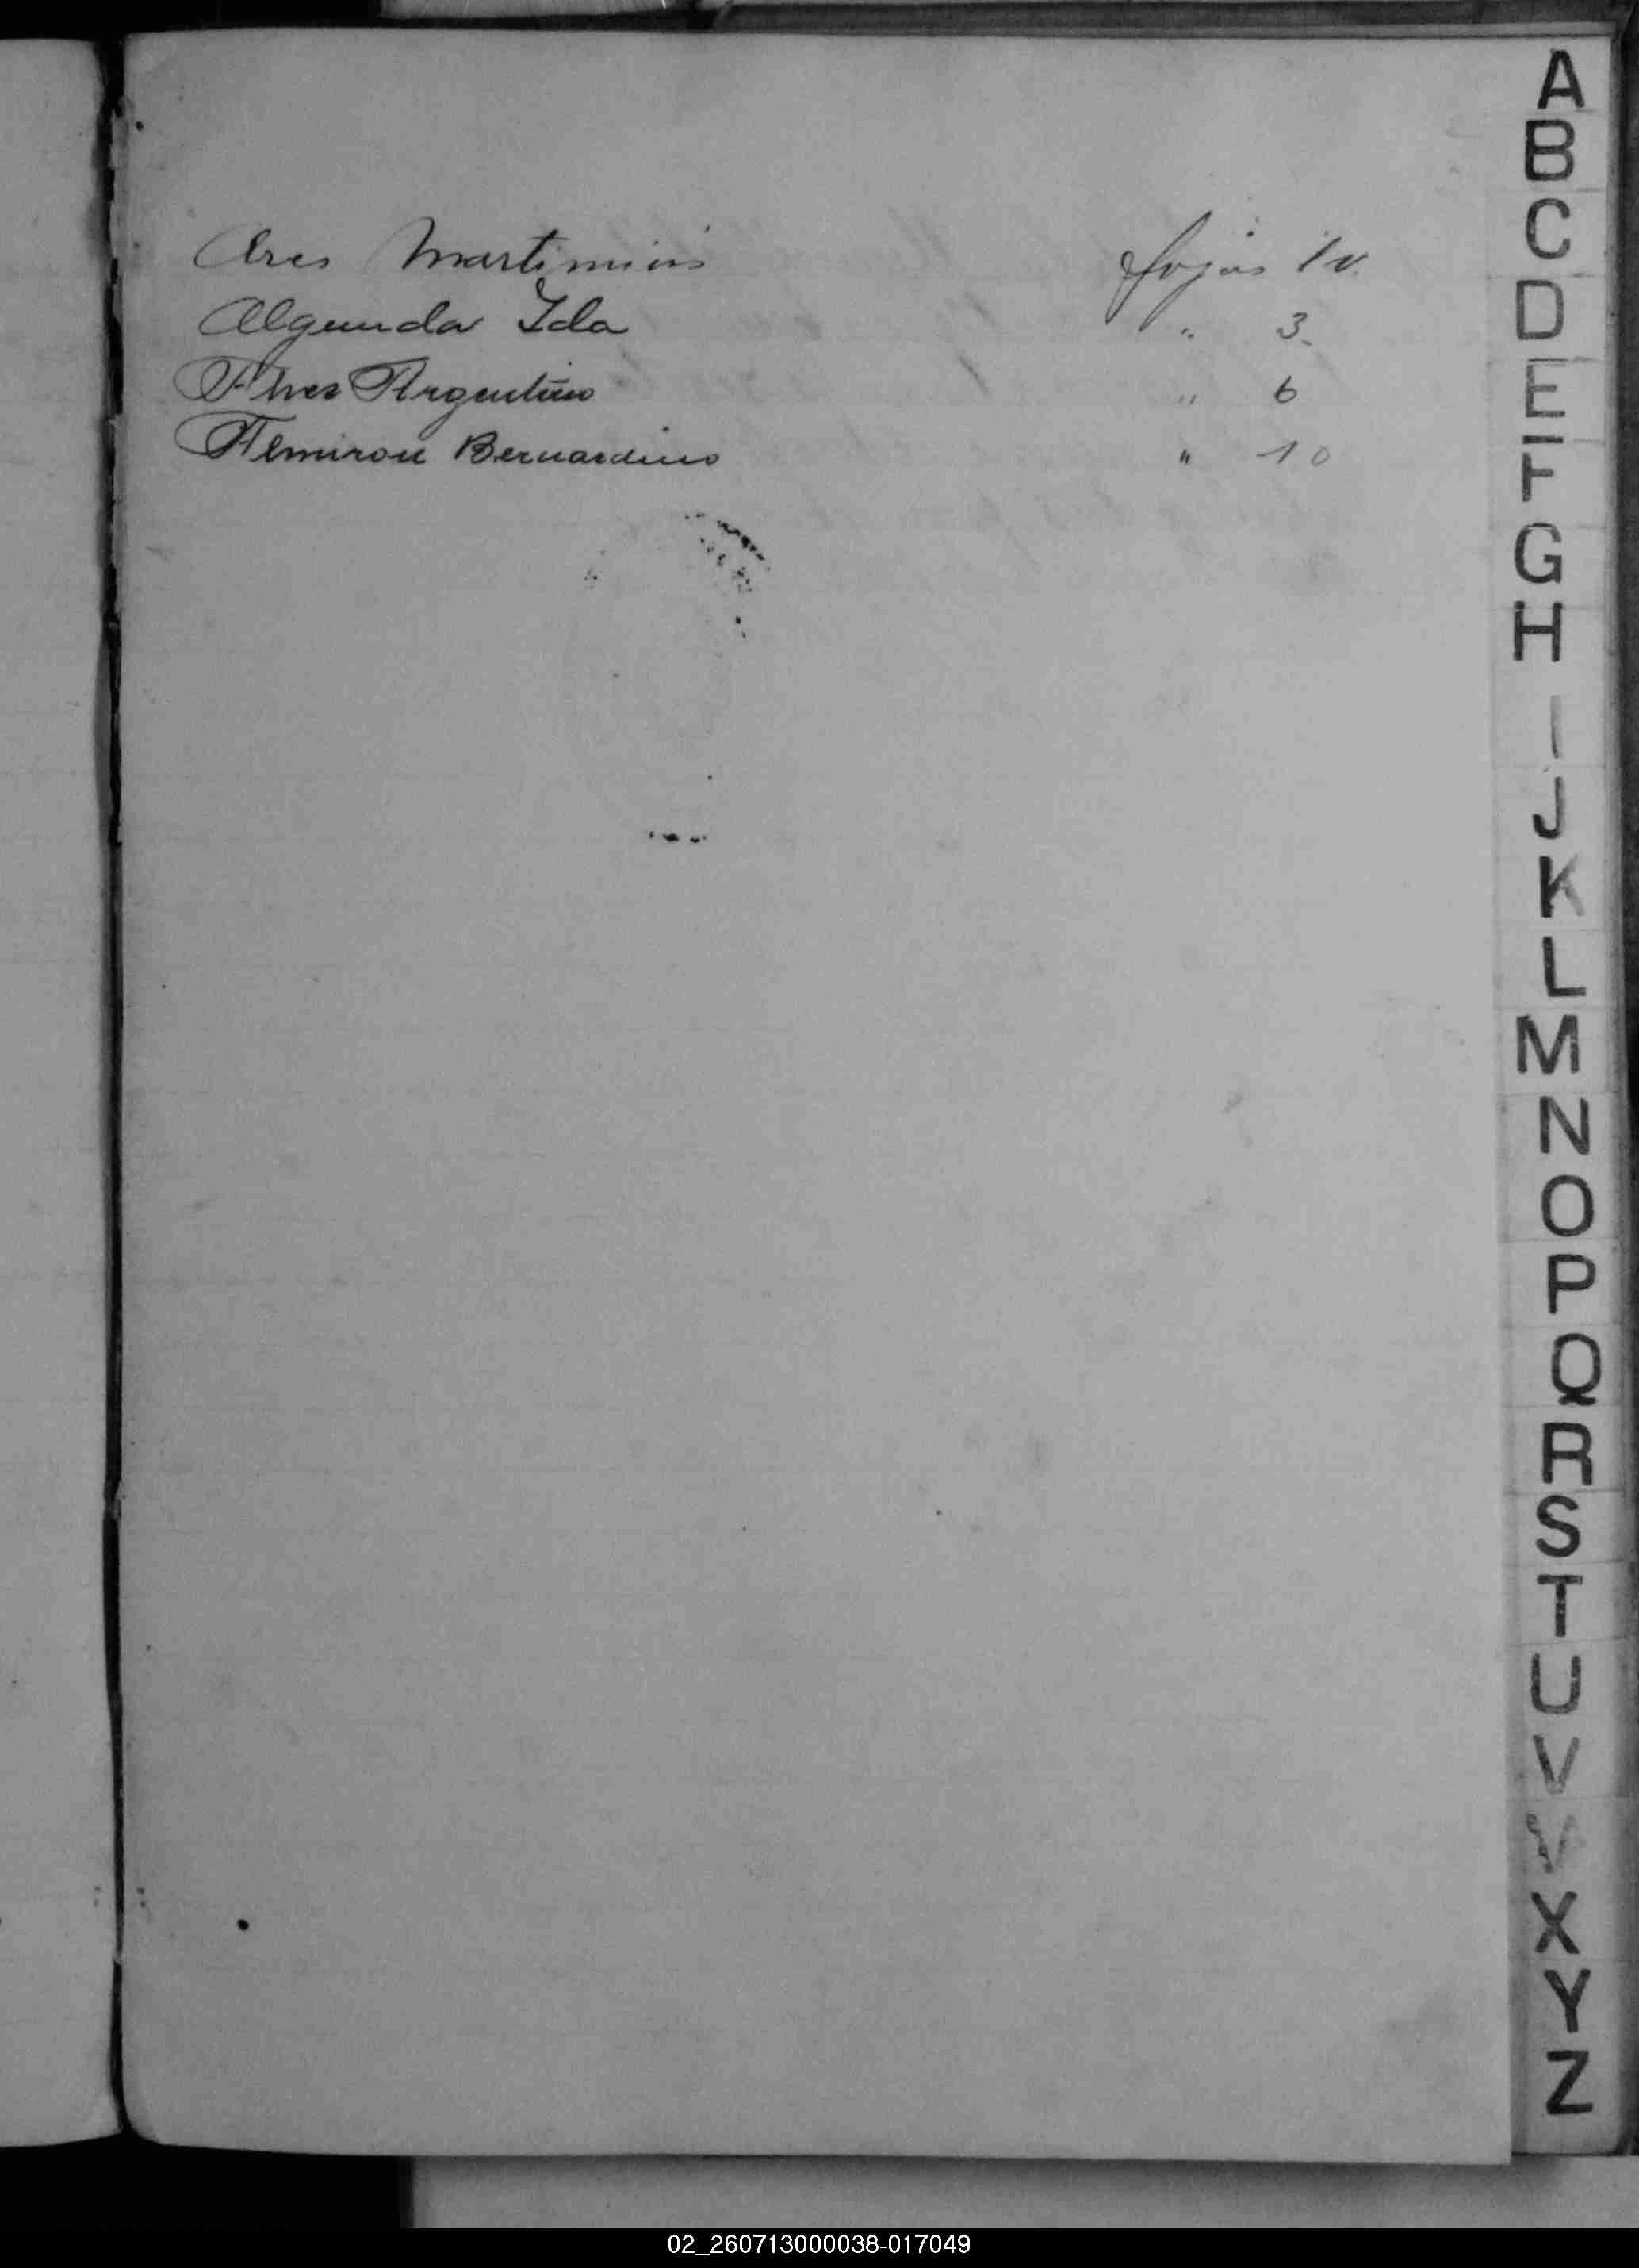 Ares Martiniano fojas 1v.
Algunda Ida " 3.
Alvez Argentino " 6
Almiron Bernardino " 10
A
B
C
D
E
F
G
H
I
J
K
L
M
N
O
P
Q
R
S
T
U
V
X
Y
Z
02_260713000038-017049